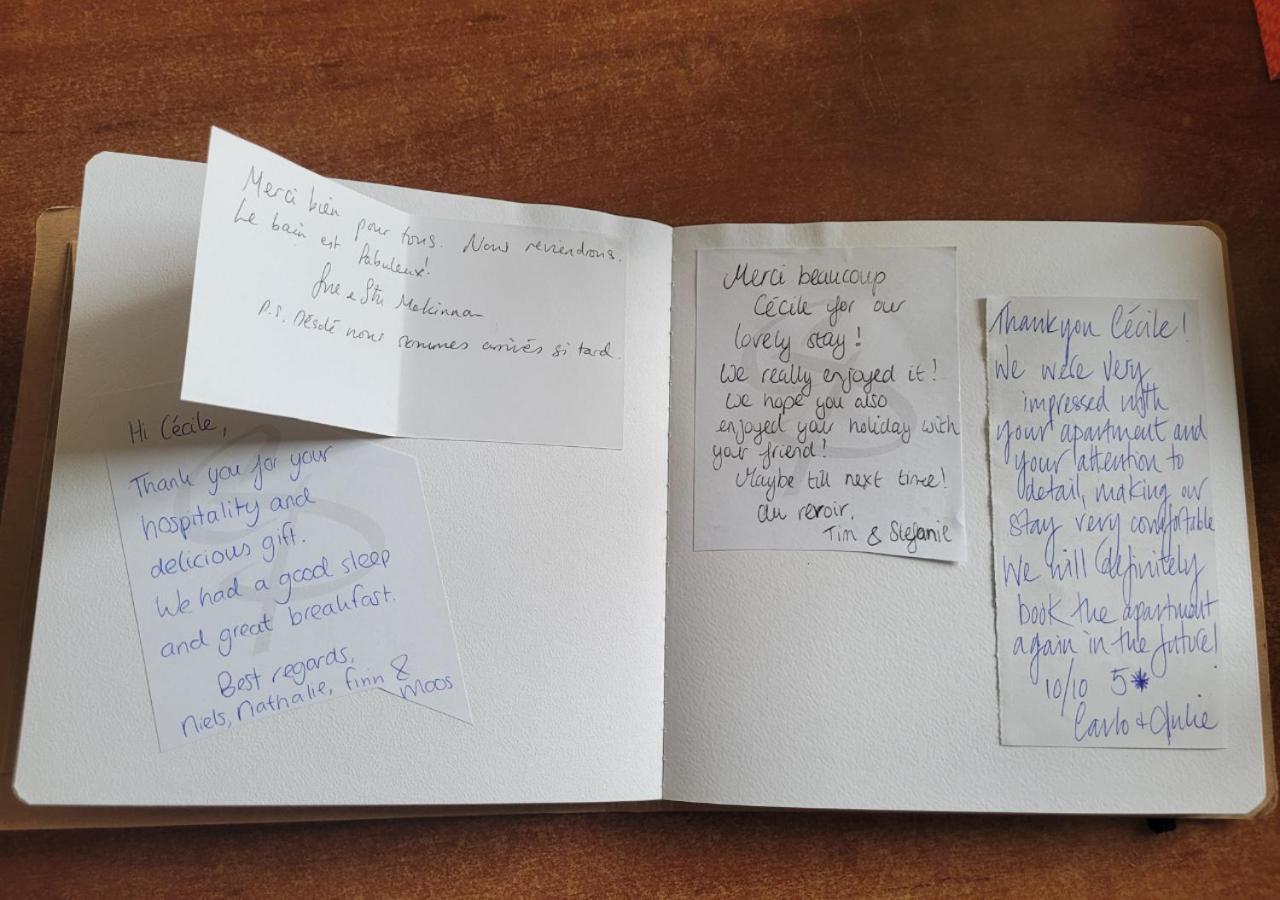 Merci bien pour tous. Nous reviendrons.
Le bain est fabuleux!
Sue e Stu Makinna
P.S. Désolé nous sommes arrivés si tard.
Hi Cécile,
Thank you for your
hospitality and
delicious gift.
We had a good sleep
and great breakfast.
Best regards,
Niels, Nathalie, Finn &
Moos
Merci beaucoup
Cécile for our
lovely stay!
We really enjoyed it!
We hope you also
enjoyed your holiday with
your friend!
Maybe till next time!
au revoir,
Tim & Stefanie
Thankyou Cécile!
We were very
impressed with
your apartment and
your attention to
detail, making our
stay very comfortable
We will definitely
book the apartment
again in the future!
10/10 5*
Carlo + Julie